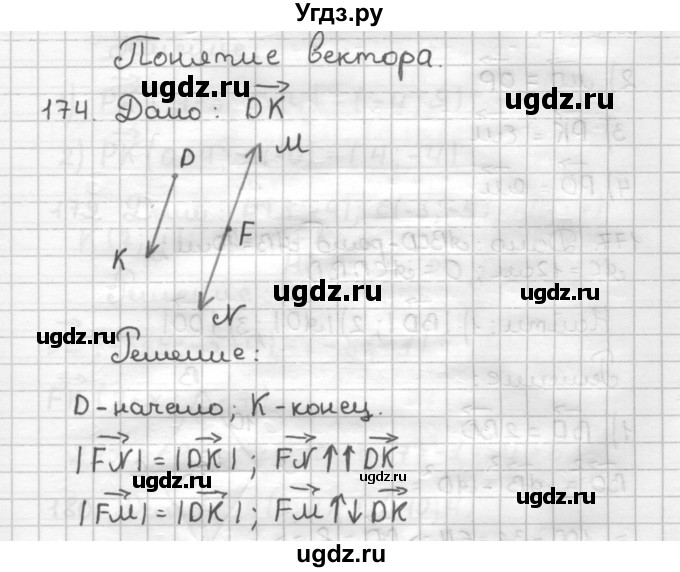 Угдз.ру
Понятие вектора.
ugdz.ru ugdz.ru
174. Дано: DK
D
M
F
K
ugdz.ru
N
ugdz.ru ugdz.ru
Решение:
D - начало; K - конец.
|FN| = |DK| ; FN ↑↑ DK
ugdz.ru ugdz.ru
|FM| = |DK| ; FM ↑↓ DK
ugdz.ru